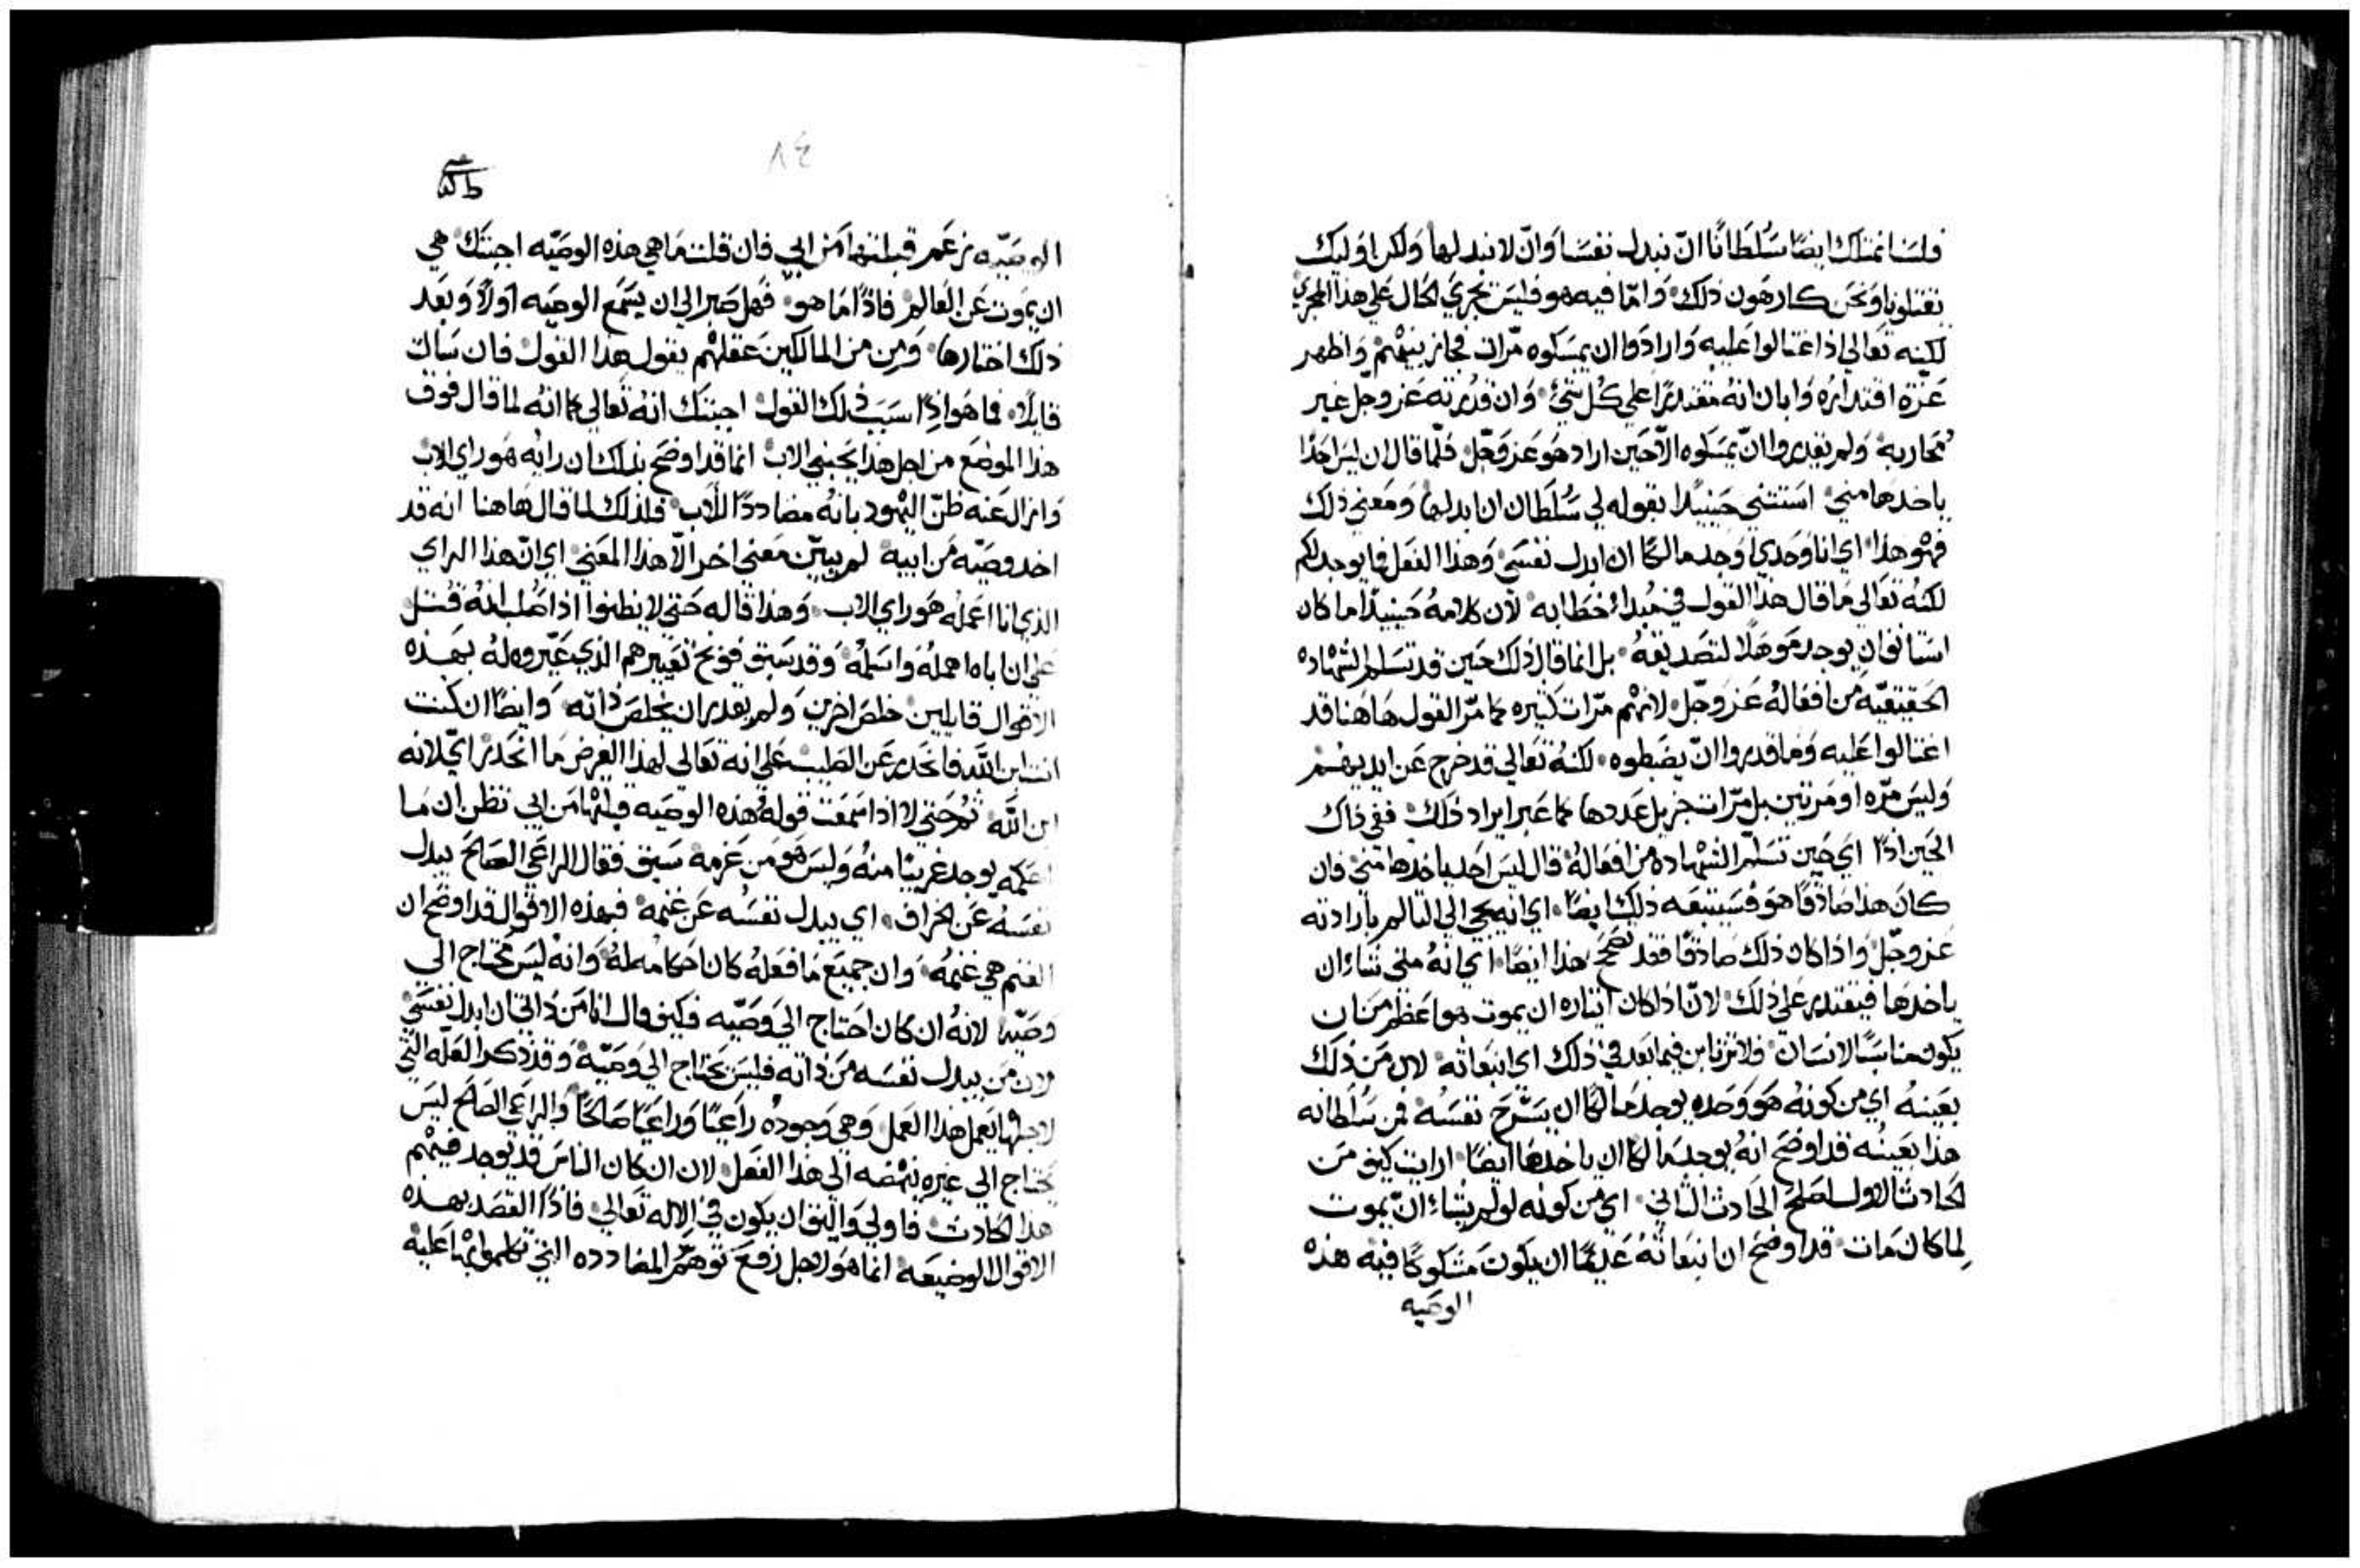 فلسنا نمتلك ايضًا سُلطانًا انّ نبدل نفسنا وانّ لا نبدلها ولكن اوليك
تقتلونا ونحن كارهون ذلك وامّا فيه هو فليس يجري الحال علي هذا المجري
لكنه تعالي اذ اغتالوا عليه وارادوا ان يمسكوه مرّات فجاز بينهم واظهر
عزة اقتداره وابان انه مقتدرًا علي كل شيء وان قدرته عز وجل غير
محاربه ولم يقدروا انّ يمسكوه الّا حين اراد هو عز وجّل فلمّا قال ان ليس احدًا
ياخدها مني استتني حينيدًا بقوله لي سُلطان ان ابدلها ومعني ذلك
فهو هذا اي انا وحدي اوجد مالكًا ان ابدل نفسي وهذا الفعل فما يوجد لكم
لكنه تعالي ما قال هذا القول في مبداء خطابه لان كلامه حينيدًا ما كان
استانف ان يوجد موهلًا لتصديقه بل انما قال ذلك حين قد تسلم الشهاده
الحقيقيّه من افعاله عز وجّل لانهم مرّات كتيره كما مرّ القول هاهنا قد
اغتالوا عليه وما قدروا انّ يضبطوه لكنه تعالي قد خرج عن ايديهم
وليس مرّه او مرتين بل مرّات جزيل عددها كما عبر ايراد ذلك ففي ذاك
الحين اذًا اي حين تسلم الشهاده من افعاله قال ليس احد ياخدها مني فان
كان هذا صادقًا هو فسيتبعه ذلك ايضًا اي انه يجي الي التالم بارادته
عز وجّل واذا كان ذلك صادقًا فقد تصحح هذا ايضًا اي انه متي شاء ان
ياخدها فيقتدر علي ذلك لانّ اذا كان ايتاره ان يموت هو اعظم من ان
يكون مناسبًا لانسان فلا ترتابن فيما بعد في ذلك اي انبعاته لان من ذلك
بعينه اي من كونه هو وحده يوجد مالكًا ان يسّرح نفسه فمن سلطانه
هذا بعينه قد اوضح انه يوجد مالكًا ان ياخدها ايضًا ارايت كيف من
الحادث الاول اصلح الحادث الثاني اي من كونه لو لم يشاء انّ يموت
لما كان مات قد اوضح ان انبعاثه عديمًا ان يكون مشكوكًا فيه هذه
الوصيه
٨٤
الوصيّه زعم قبلتها من ابي فان قلت ما هي هذه الوصيّه اجبتك هي
ان يموت عن العالم فاذًا ما هو فهل صبر الي ان يسمع الوصيه اولًا وبعد
ذلك اختارها ومن من المالكين عقلهم يقول هذا القول فان سالت
قايلًا فما هو اذًا سبب ذلك القول اجبتك انه تعالي كما انه لما قال فوق
هذا الموضع من اجل هذا يحبني الاب انما قد اوضح بذلك ان رايه هو راي الاب
وازال عنه ظنّ اليهود بانه مضاددًا للاب فلذلك لما قال هاهنا انه قد
اخد وصيّه من ابيه لم يبيّن معني اخر الّا هذا المعني اي انّ هذا الراي
الذي انا اعمله هو راي الاب وهذا قاله حتي لا يظنوا اذا صُلب انه قُتل
علي ان اباه اهمله واسلمه وقد سبق فوبخ تعييرهم الذي عيّروه له بهذه
الاقوال قايلين خلص اخرين ولم يقدر ان يخلص ذاته وايضًا ان كنت
انت ابن الله فانحدر عن الصليب علي انه تعالي لهذا الغرض ما انحدر اي لانه
ابن الله ثم حتي لا اذا سمعت قوله هذه الوصيه قبلتها من ابي تظن ان ما
احكمه يوجد غريبًا منه وليس هو من عزمه سبق فقال الراعي الصالح يبدل
نفسه عن الخراف اي يبدل نفسه عن غنمه فبهذه الاقوال قد اوضح ان
الغنم هي غنمه وان جميع ما فعله كان احكامه له وانه ليس يحتاج الي
وصيّه لانه ان كان احتاج الي وصيّه فكيف قال انا من ذاتي ان ابدل نفسي
لان من يبدل نفسه من ذاته فليس يحتاج الي وصيّه وقد ذكر العلّه التي
لاجلها يعمل هذا العمل وهي وجوده راعيًا وراعيًا صالحًا والراعي الصالح ليس
يحتاج الي غيره ينهضه الي هذا الفعل لان ان كان الناس قد توجد فيهم
هذا الحادث فاولي واليق ان يكون في الاله تعالي فاذًا القصد بهذه
الاقوال الوضيعه انما هو لاجل رفع توهم المضادده التي تكلموا بها عليه